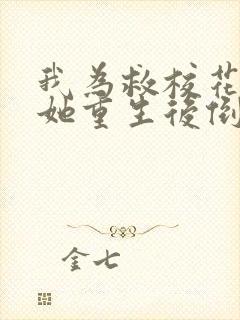 我为救校花
她重生后倒
金七